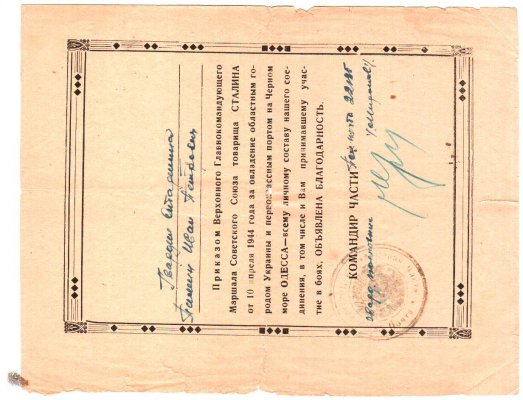 Гвардии
Иван Петрович
Приказом Верховного Главнокомандующего
Маршала Советского Союза товарища СТАЛИНА
от 10 апреля 1944 года за овладение областным го-
родом Украины и первоклассным портом на Черном
море ОДЕССА—всему личному составу нашего сое-
динения, в том числе и Вам принимавшему учас-
тие в боях, ОБЪЯВЛЕНА БЛАГОДАРНОСТЬ.
КОМАНДИР ЧАСТИ